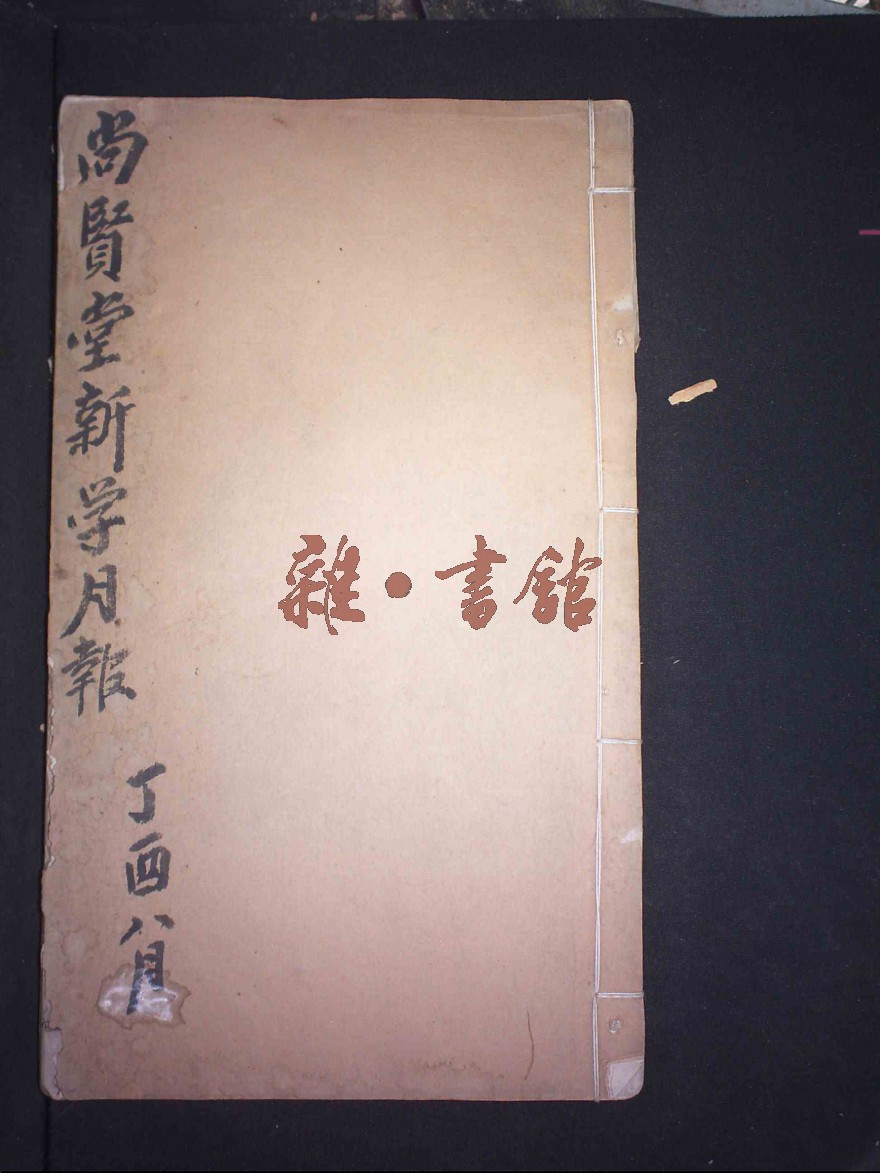 尚賢堂新学月報
丁酉八月
雜·書館